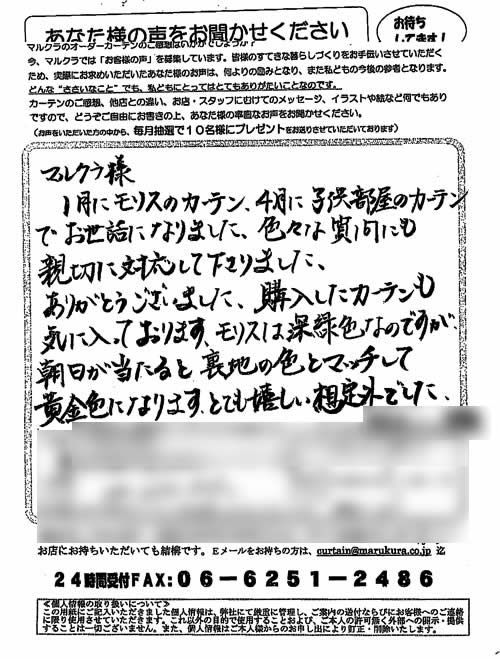 あなた様の声をお聞かせください
お待ち
してます!
マルクラのオーダーカーテンのご感想はいかがでしょうか?
今、マルクラでは「お客様の声」を募集しています。皆様のすてきな暮らしづくりをお手伝いさせていただく
ため、実際にお求めいただいたあなた様のお声は、何よりの励みとなり、また私どもの今後の参考となります。
どんな"ささいなこと"でも、私どもにとってはとてもありがたいことなのです。
カーテンのご感想、他店との違い、お店・スタッフにむけてのメッセージ、イラストや絵など何でもあり
ですので、どうぞご自由にお書きの上、あなた様の率直なお声をお聞かせください。
(お声をいただいた方の中から、毎月抽選で10名様にプレゼントをお送りさせていただいております)
マルクラ様
1月にモリスのカーテン、4月に子供部屋のカーテン
でお世話になりました、色々な質問にも
親切に対応して下さりました、
ありがとうございました、購入したカーテンも
気に入っております、モリスは深緑色なのですが、
朝日が当たると裏地の色とマッチして
黄金色になります、とても嬉しい想定外でした、
お店にお持ちいただいても結構です。Eメールをお持ちの方は、curtain@marukura.co.jp 迄
24時間受付FAX:06-6251-2486
≪個人情報の取り扱いについて≫
この用紙にご記入いただきました個人情報は、弊社にて厳重に管理し、ご案内の送付ならびにお客様へのご連絡
に限り使用させていただきます。これ以外の目的で使用することおよび、ご本人の許可無く外部への開示・提供
することは一切ございません。また、個人情報はご本人様からのお申し出により訂正・削除いたします。